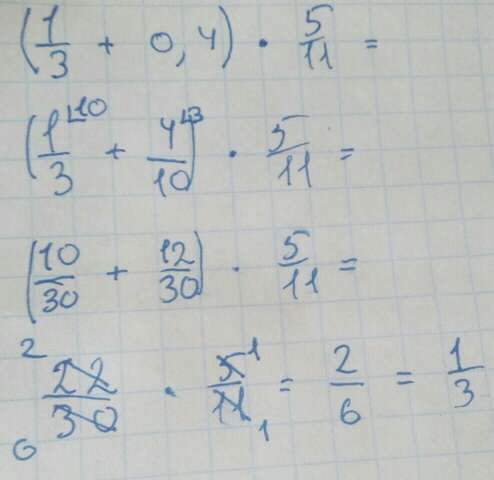 (1/3 + 0,4) · 5/11 =
(1/3 ⌊10 + 4/10 ⌊3) · 5/11 =
(10/30 + 12/30) · 5/11 =
2 22/30 6 · 5/11 1 1 = 2/6 = 1/3